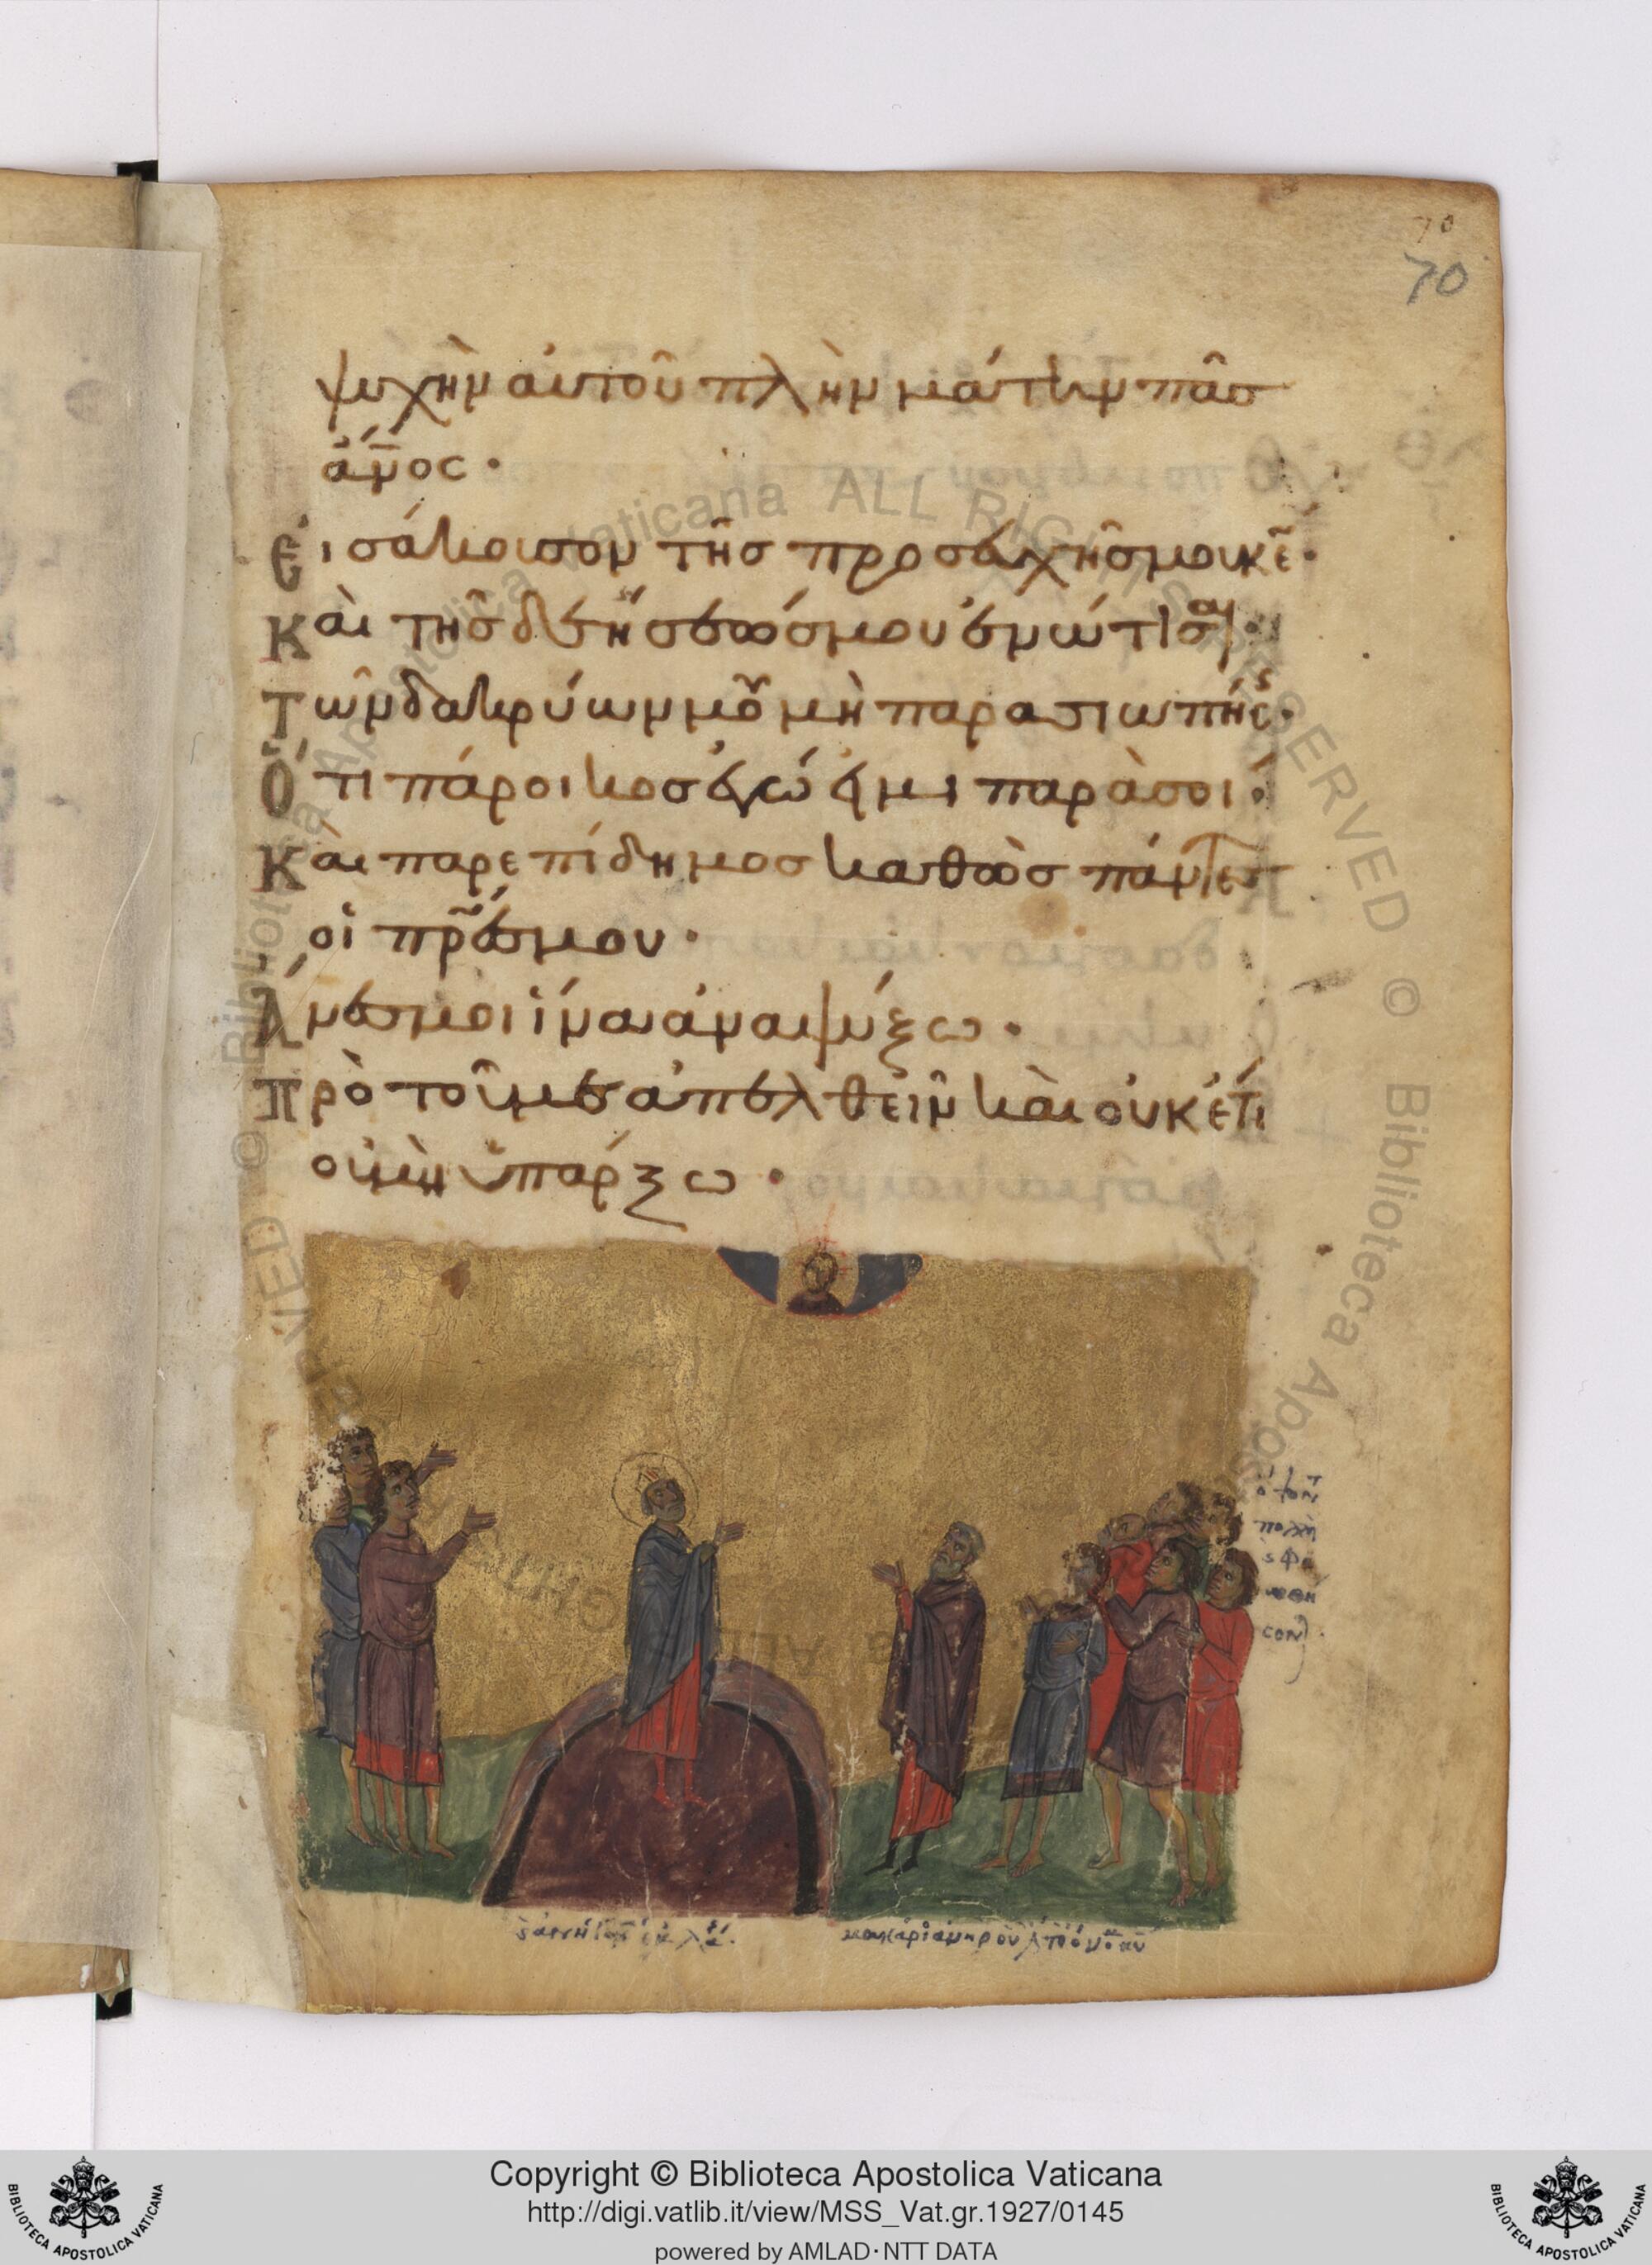 70
70
ψυχὴν αὐτοῦ πλὴν μάτην πᾶσ
ἄν̅ος·
Εἰσάκουσον τῆσ προσευχῆσ μου κε̅·
Καὶ τῆσ δεήσεώσ μου ἐνώτισαι·
Τῶν δακρύων μου μὴ παρασιωπήσῃς·
Ὅτι πάροικοσ ἐγώ εἰμι παρὰ σοί·
Καὶ παρεπίδημοσ καθὼσ πάντεσ
οἱ πρ̅εσ μου·
Ἄνεσ μοι ἵνα ἀναψύξω·
Πρὸ τοῦ με ἀπελθεῖν καὶ οὐκέτι
οὐ μὴ ὑπάρξω·
Copyright © Biblioteca Apostolica Vaticana
http://digi.vatlib.it/view/MSS_Vat.gr.1927/0145
powered by AMLAD·NTT DATA
BIBLIOTECA APOSTOLICA VATICANA
BIBLIOTECA APOSTOLICA VATICANA